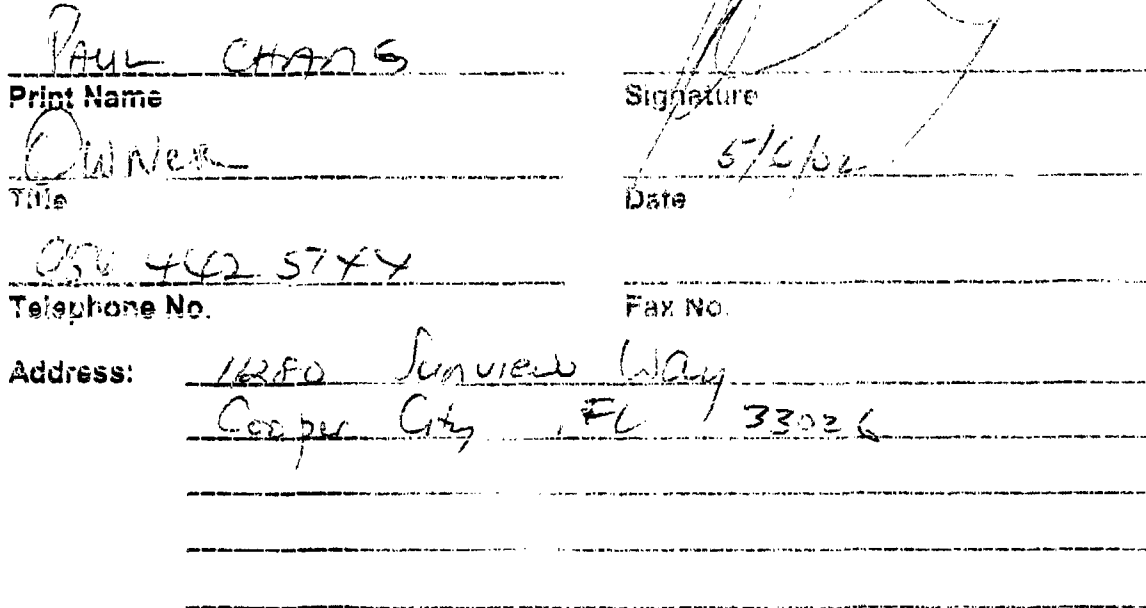 PAUL CHANG
Print Name
Signature
OWNER
5/6/02
Title
Date
954 442 5744
Telephone No.
Fax No.
Address: Sunview Way
Cooper City, FL 33026